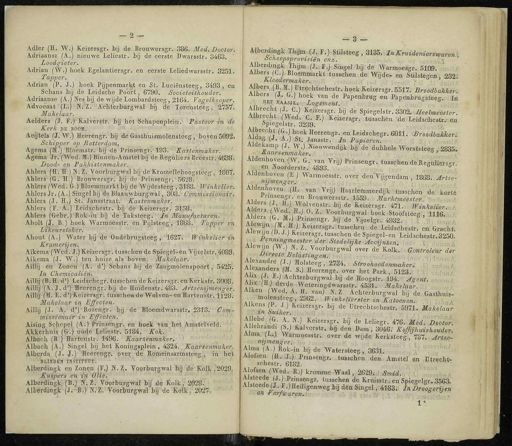 — 2 —
Adler (H. W.) Keizersgr. bij de Brouwersgr. 386. Med. Doctor.
Adriaansz (A.) nieuwe Leliestr. bij de eerste Dwarsstr. 3463.
Loodgieter.
Adrian (W.) hoek Egelantiersgr. en eerste Leliedwarsstr. 3251.
Tapper.
Adrian (P. J.) hoek Pijpenmarkt en St. Luciënsteeg, 3493, en
Schans bij de Leidsche Poort, 6790. Societeithouder.
Adriaanse (A.) Nes bij de wijde Lombardsteeg, 2164. Vogelkooper.
Advocaat (L.) N.Z. Achterburgwal bij de Torensteeg, 2757.
Makelaar.
Aelders (J. F.) Kalverstr. bij het Schapenplein. Pastoor in de
Kerk
Aeijtels (J. W.) Heerengr. bij de Gasthuismolensteeg, boven 5092.
Schipper op Rotterdam.
Agema (H.) Bloemstr. bij de Prinsengr. 193. Kartenmaker.
Agema Jr. (Wed. M.) Binnen-Amstel bij de Reguliers Breestr. 4698.
Dood- en Pakkistenmaker.
Ahlers (H. H.) N.Z. Voorburgwal bij de Kromelleboogsteeg, 1607.
Ahlers (H. G.) Brouwersgr. bij de Prinsengr. 5629.
Ahlers (Wed. G.) Bloemmarkt bij de Wijdesteeg, 3183. Winkelier.
Ahlers Jr. (A.) Singel bij de Blaauwburgwal, 363. Commissionair.
Ahlers (J. H.) St. Jansstraat. Kastenmaker.
Ahlers (F. A.) Leidschegr. bij de Keizersgr. 3151.
Ahlers (Gebr.) Rokin bij de Taksteeg. In Manufacturen.
Aholt (J. B.) hoek Warmoesstr. en Pijlsteeg, 1865. Tapper en
Likeurstoker.
Ahout (A.) Water bij de Oudebrugsteeg, 1627. Winkelier in
Kramerijen.
Aikema (Wed. J.) Keizersgr. tusschen de Spiegel- en Vijzelstr. 4089.
Aikema (J. W.) ten huize als boven. Makelaar.
Aillij en Zonen (A. d') Schans bij de Zaagmolenspoort, 5425.
Chemicaliën.
Aillij (B. H. d') Leidschegr. tusschen de Keizersgr. en Kerkstr. 3006.
Aillij (A. J. d') Heerengr. bij de Huidenstr. 463. Artsenijmenger.
Aillij (M. E. d') Keizersgr. tusschen de Wolven- en Hartenstr. 1128.
Makelaar in Effecten.
Aillij (J. A. d') Rozengr. bij de Bloemdwarsstr. 2313. Commissionair in Effecten.
Aising Schepel (A.) Prinsengr. en hoek van het Amstelveld.
Akkerhuis (G.) oude Leliestr. 5164. Kok.
Albach (B.) Hartenstr. 1496. Kaarsenmaker.
Albach (A.) Singel bij het Koningsplein, 4324. Kaarsenmaker.
Alberda (J. J.) Heerengr. over de Romeinsarmsteeg, in het
Alberdingk en Zonen (F.) N.Z. Voorburgwal bij de Kolk, 2029.
Kuipers en in Olie.
Alberdingk (B.) N.Z. Voorburgwal bij de Kolk, 2028.
Alberdingk (J. B.) N.Z. Voorburgwal bij de Kolk, 2027.
— 3 —
Alberdingk Thijm (J. F.) Stilsteeg, 3135. In Kruidenierswaren,
Scheepsprovisiën enz.
Alberdingk Thijm (J. F.) Singel bij de Warmoesgr. 5109.
Albers (C.) Bloemmarkt tusschen de Wijde- en Stilsteegen, 252.
Kleedermaker.
Albers (B. M.) Utrechtschestr. hoek Keizersgr. 5517. Broodbakker.
Albers (J. G.) hoek van de Papenbrug en Papenbrugsteeg. In
Logement.
Albrecht (J. C.) Keizersgr. bij de Spiegelstr. 3302. Heelmeester.
Albrecht (Wed. C. F.) Keizersgr. tusschen de Leidschestr. en
Spiegelstr. 3238.
Albrecht (G.) hoek Heerengr. en Leidschegr. 6011. Broodbakker.
Aldag (J. A.) St. Jansstr. In Papieren.
Aldekamp (J. W.) Noorwendijk bij de dubbele Worststeeg, 2835.
Kaarsenmaker.
Aldenhoven, (W. G. van Vrij) Prinsengr. tusschen de Reguliersgr.
en Noorderstr. 4893.
Aldenhoven (E.) Warmoesstr. over den Vijgendam, 1868. Artsenijmenger.
Aldenhoven (H. van Vrij) Haarlemmerdijk tusschen de korte
Prinsengr. en Brouwersstr. 1559. Marktmeester.
Alders (J. H.) Wolvenstr. bij de Keizersgr. 471. Winkelier.
Alders (Wed. H.) O.Z. Voorburgwal hoek Stoofsteeg, 1116.
Alders (G. M.) Prinsengr. bij de Vijzelgr. 4932.
Alewijn (M. H.) Keizersgr. tusschen de Leidschestr. en Gracht.
Alewijn (D. J.) Keizersgr. tusschen de Spiegel- en Leidschestr. 3250.
Penningmeester der Stedelijke Accijnsen.
Alewijn (W.) N.Z. Voorburgwal over de Kolk. Controleur der
Directe Belastingen.
Alexandre (J.) Holsteeg, 2724. Stroohoedenmaker.
Alexanders (M. S.) Heerengr. over het Park, 5123.
Alix (J. E.) Achterburgwal bij de Hoogstr. 154. Agent.
Alix (E.) derde Weteringdwarsstr. 4531. Makelaar.
Alken (Wed. A. H. van) N.Z. Achterburgwal bij de Gasthuismolensteeg, 2962. Winkelierster in Katoenen.
Alkens (P. J.) Keizersgr. bij de Utrechtschestr. 5971. Makelaar
in Suiker.
Allebé (G. A. N.) Keizersgr. bij de Leliegr. 476. Med. Doctor.
Allebrandi (S.) Kalverstr. bij den Dam, 3046. Koffijhuishouder.
Alma, (L.) Warmoesstr. over de wijde Kerksteeg, 737. Artsenijmenger.
Alma (A.) Rok-in bij de Watersteeg, 3631.
Alofsen (H. J.) Prinsengr. tusschen den Amstel en Utrechtschestr. 6132.
Alofsen (Wed. R.) kromme Waal, 2629. Smid.
Alsteede (J.) Prinsengr. tusschen de Kerkstr. en Spiegelgr. 3563.
Alsteede (J. F.) Heiligenweg bij den Singel, 4163. In Droogerijen
en Verfwaren.
1*